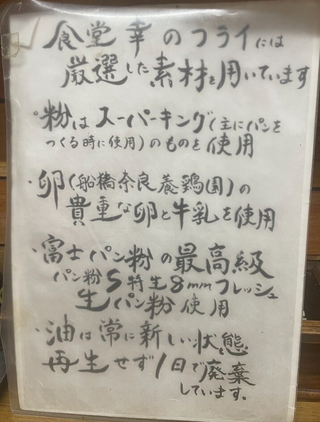 食堂 幸 のフライには
厳選した素材を用いています
・粉はスーパーキング(主にパンを
つくる時に使用)のものを使用
・卵(船橋奈良養鶏園)の
貴重な卵と牛乳を使用
・富士パン粉の最高級
パン粉S特生8mmフレッシュ
生パン粉使用
・油は常に新しい状態
再生せず1日で廃棄
しています。